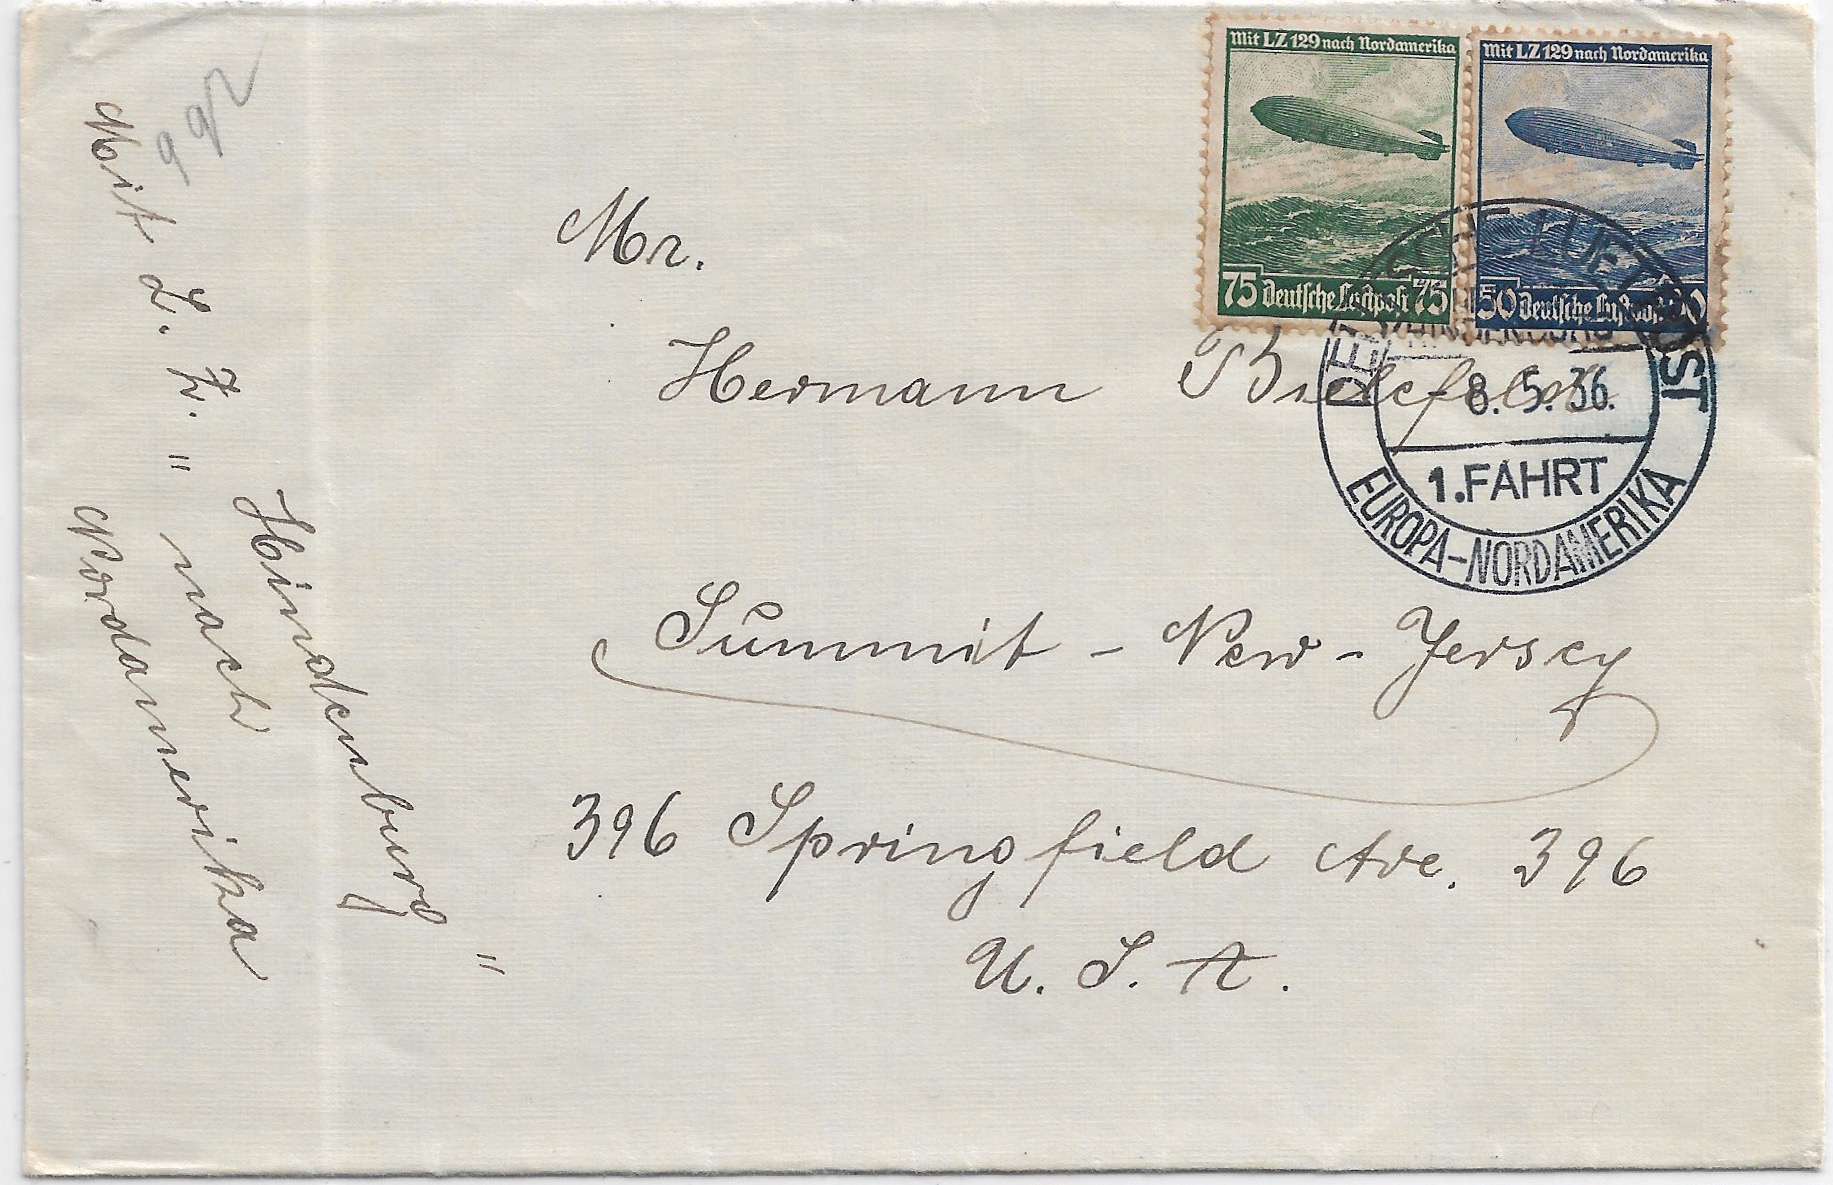 Mit LZ 129 nach Nordamerika
75 Deutsche Luftpost 75
Mit LZ 129 nach Nordamerika
50 Deutsche Luftpost 50
DEUTSCHE LUFTPOST
8.5.36.
1.FAHRT
EUROPA-NORDAMERIKA
Mr.
Hermann Bielefeld
Summit - New - Jersey
396 Springfield Ave. 396
U. S. A.
Mit L. Z. " Hindenburg "
nach Nordamerika